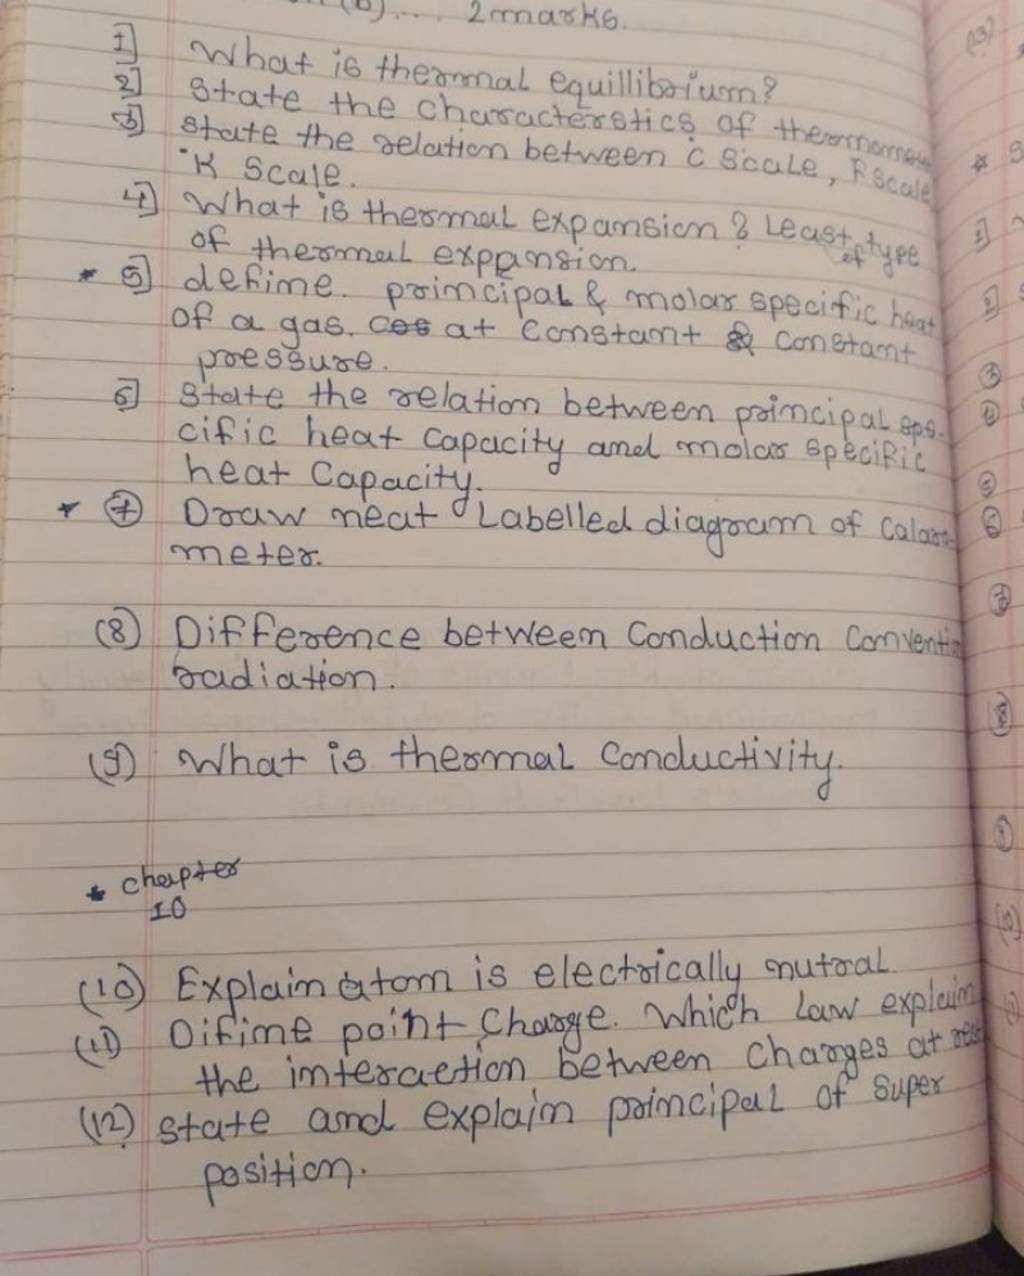 (B)... 2 marks.
1] What is thermal equillibrium?
2] State the characterstics of thermomete
3] state the relation between °C Scale, F scale
°K Scale.
4] What is thermal expansion? Least type
of
of thermal expansion.
* 5] define principal & molar specific heat
of a gas. at constant & constant
pressure.
6] State the relation between principal spe-
cific heat capacity and molar specific
heat Capacity.
* 7 Draw neat Labelled diagram of Calaro-
meter.
(8) Difference between Conduction Conventio
radiation.
(9) What is thermal Conductivity.
* chapter
10
(10) Explain atom is electrically nutral.
(11) Difine point Charge. Which Law explain
the interaction between Charges at rest
(12) state and explain principal of super
position.
(13)